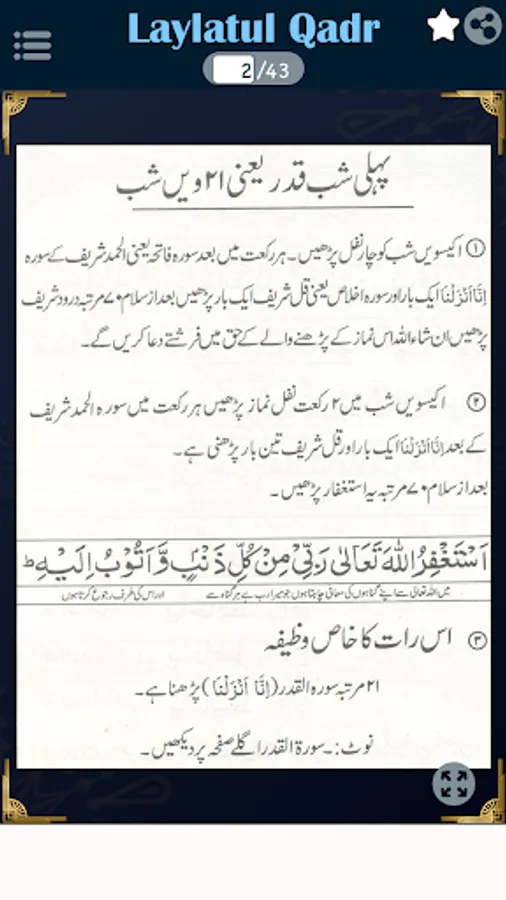 Laylatul Qadr
2/43
پہلی شب قدر یعنی ۲۱ ویں شب
① اکیسویں شب کو چار نفل پڑھیں۔ ہر رکعت میں بعد سورہ فاتحہ یعنی الحمد شریف کے سورہ
اِنَّا اَنْزَلْنَا ایک بار اور سورہ اخلاص یعنی قل شریف ایک بار پڑھیں بعد از سلام ۷۰ مرتبہ درود شریف
پڑھیں ان شاء اللہ اس نماز کے پڑھنے والے کے حق میں فرشتے دعا کریں گے۔
② اکیسویں شب میں ۲ رکعت نفل نماز پڑھیں ہر رکعت میں سورہ الحمد شریف
کے بعد اِنَّا اَنْزَلْنَا ایک بار اور قل شریف تین بار پڑھنی ہے۔
بعد از سلام ۷۰ مرتبہ یہ استغفار پڑھیں۔
اَسْتَغْفِرُ اللهَ تَعَالٰى رَبِّىْ مِنْ كُلِّ ذَنْۢبٍ وَّاَتُوْبُ اِلَيْهِ ؕ
میں اللہ تعالی سے اپنے گناہوں کی معافی چاہتا ہوں جو میرا رب ہے ہر گناہ سے اور اس کی طرف رجوع کرتا ہوں
③ اس رات کا خاص وظیفہ
۲۱ مرتبہ سورہ القدر (اِنَّا اَنْزَلْنَا) پڑھنا ہے۔
نوٹ:۔ سورۃ القدر اگلے صفحہ پر دیکھیں۔